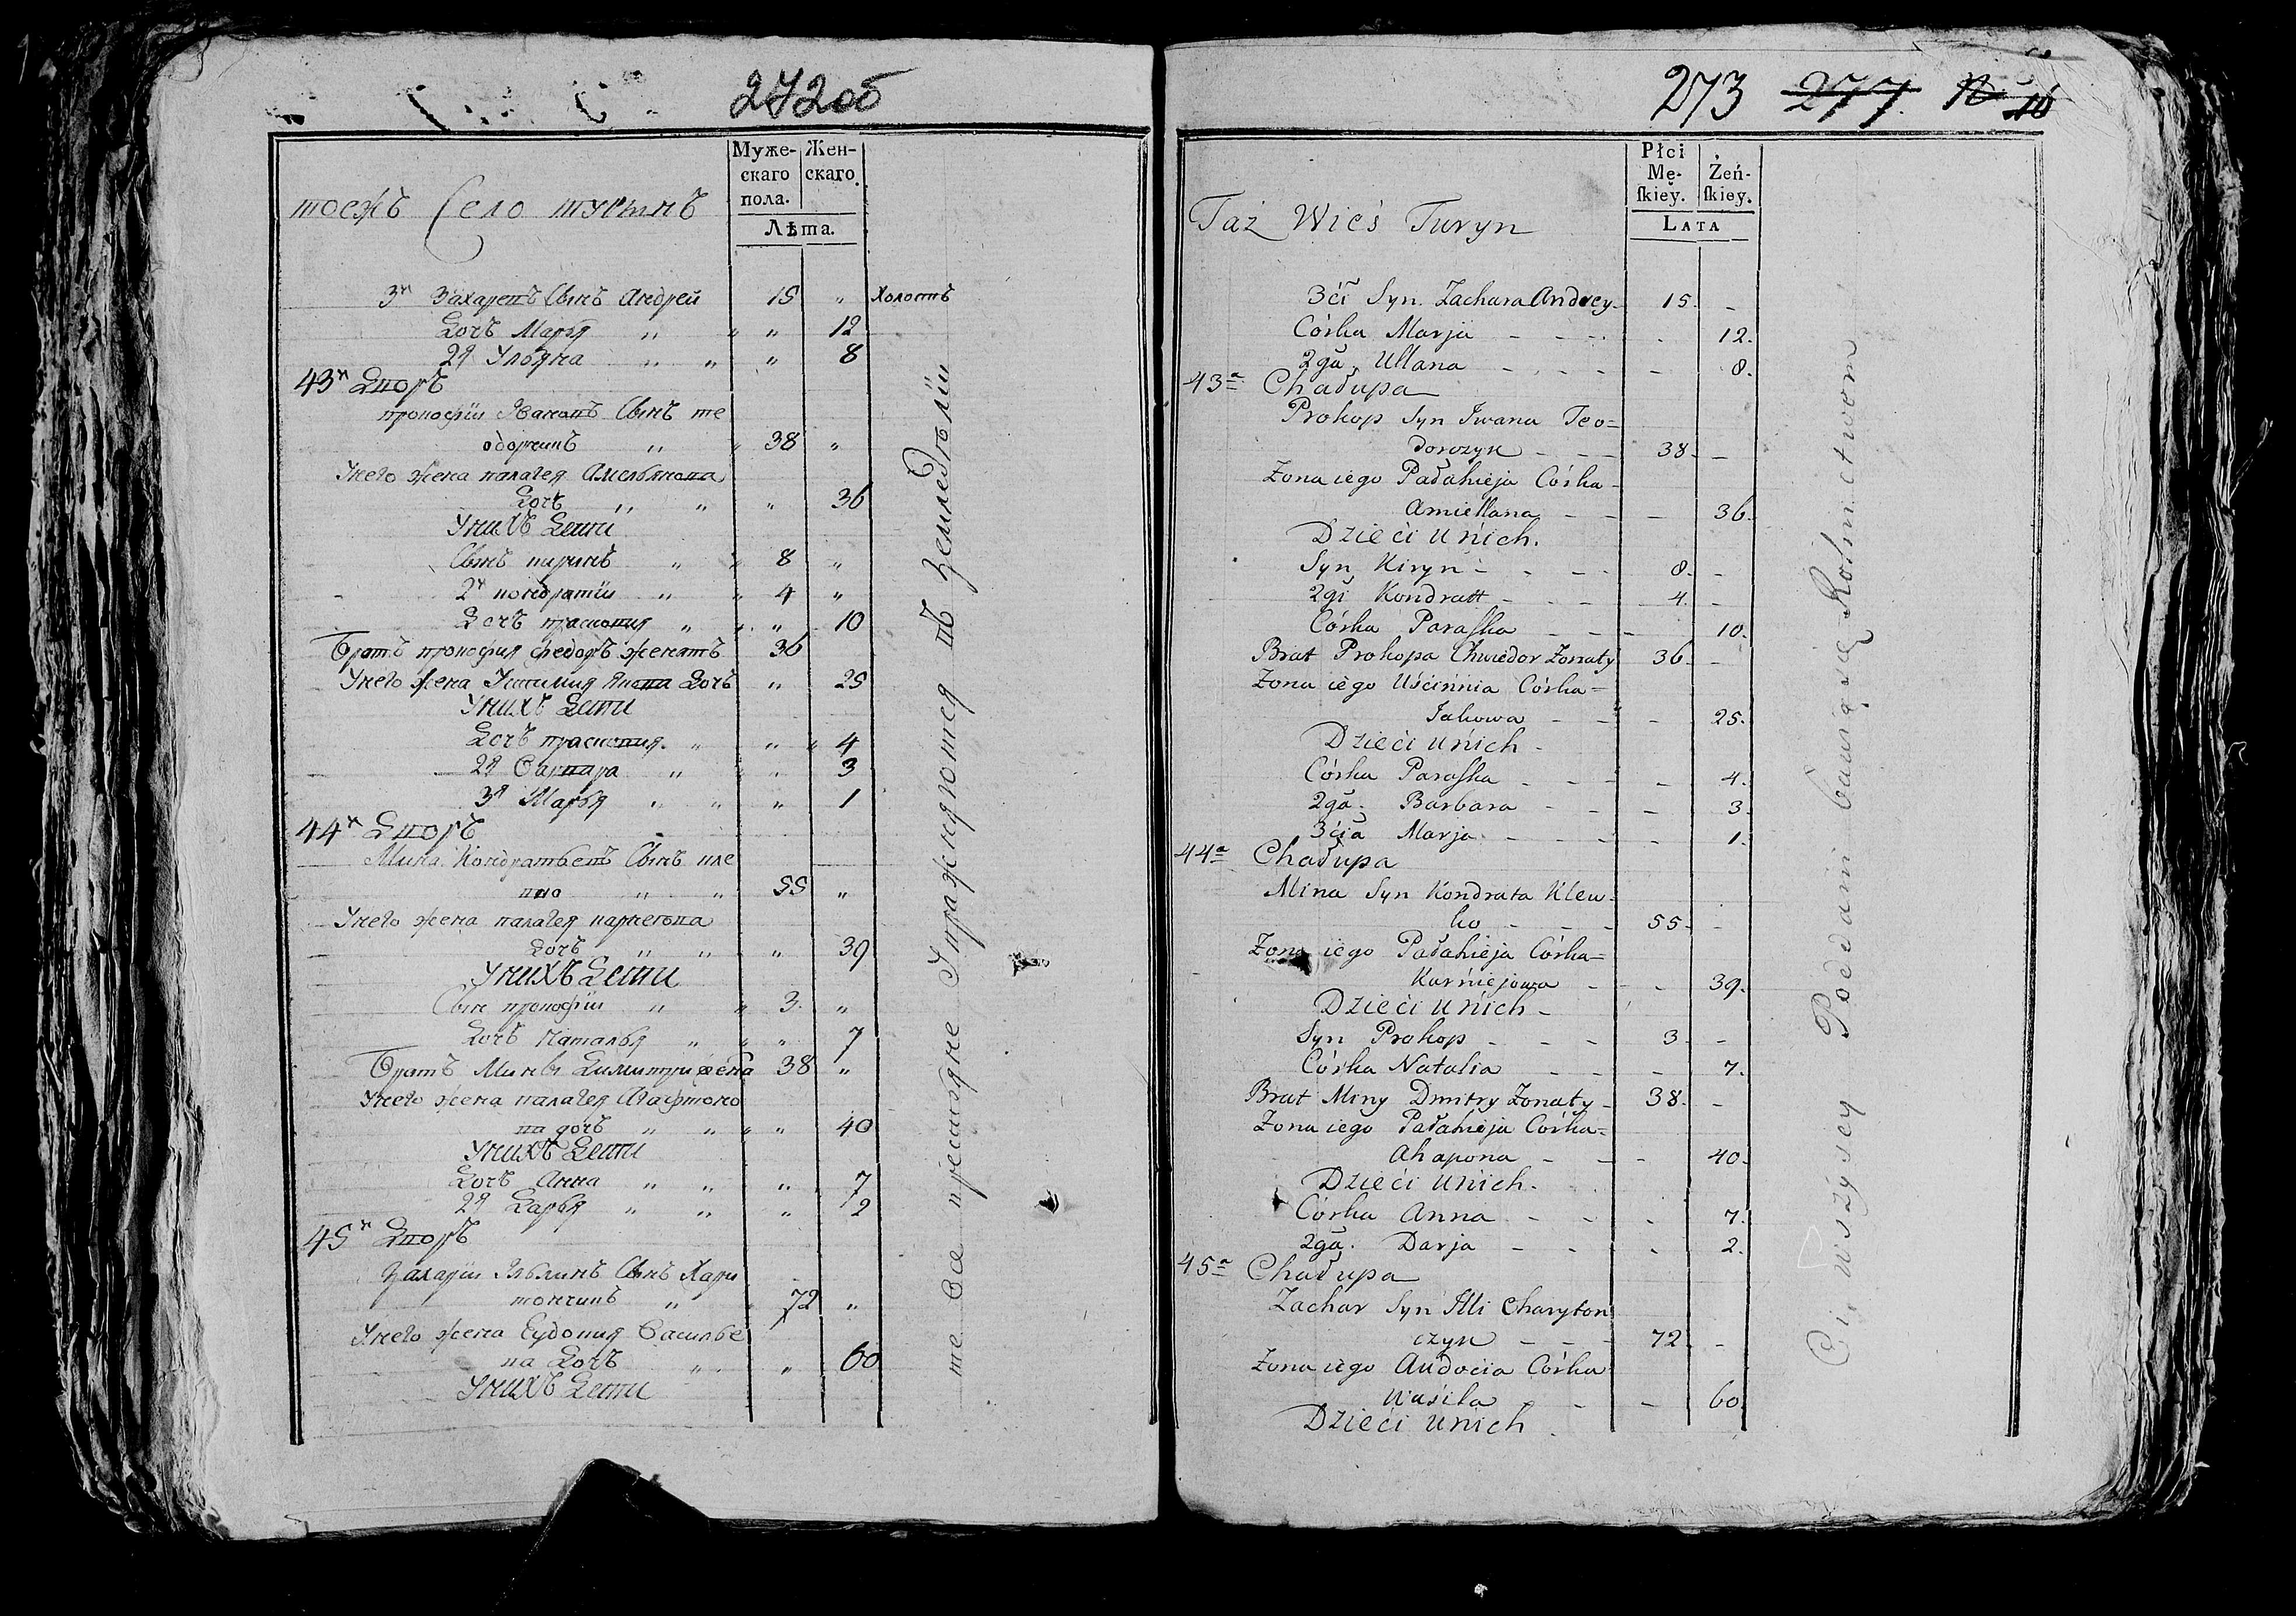 272об
Муже-
скаго
пола.
Жен-
скаго
Лѣта.
тоежъ Село турынъ
3й Захаревъ Сынъ Андрей 15 „ Холостъ
Дочь Марья „ „ „ 12
2я Ульяна „ „ „ 8
43й Дворъ
прокофій Ивановъ Сынъ те
одорчикъ „ „ 38 „
Унего жена палагея Амельянова
Дочь „ „ „ 36
Унихъ Дети
Сынъ киринъ „ „ 8 „
2й кондратій „ „ 4 „
Дочь прасковия „ „ „ 10
Братъ прокофия федоръ женатъ 36
Унего жена Устимия Якова Дочь „ 25
Унихъ Дети
Дочь прасковия „ „ „ 4
2я Варвара „ „ „ 3
3я Марья „ „ „ 1
44й Дворъ
Мина Кондратьевъ Сынъ кле
вко „ „ 55 „
Унего жена палагея карнеева
Дочь „ „ „ 39
Унихъ Дети
Сын прокофій „ „ 3 „
Дочь Наталья „ „ „ 7
Братъ Мины Димитри жена 38 „
Унего жена палагея Агафоно
ва дочь „ „ „ „ 40
Унихъ Дети
Дочь Анна „ „ „ 7
2я Дарья „ „ „ 2
45й Дворъ
Захарій Ильинъ Сынъ Хари
тончикъ „ „ 72 „
Унего жена Еудокия Василье
ва Дочь „ „ 60
Унихъ Дети
те все крестьяне Упражняются въ Земледѣліи
273 277. N 10
Płci
Mę-
skiey.
Żeń-
skiey.
LATA
Taż Wieś Turyn
3ći Syn Zachara Andrey 15. -
Córka Marja - - - - 12.
2ga Ullana - - - - 8.
43a Chałupa
Prokop Syn Iwana Teo=
dorczyk - - - 38. -
Zona iego Pałahieja Córka -
Amiellana - - - 36.
Dzieći Unich.
Syn Kiryn - - - 8. -
2gi Kondratt - - - 4. -
Córka Paraska - - - 10.
Brat Prokopa Chwiedor Zonaty 36. -
Zona iego Uścinnia Córka=
Jakowa - - - 25.
Dzieći Unich -
Córka Paraska - - - - 4.
2ga. Barbara - - - 3.
3ćia Marja - - - - 1.
44a Chałupa
Mina Syn Kondrata Klew-
ko - - - 55. -
Zona iego Pałahieja Córka=
Karniejowa - - 39.
Dzieći Unich -
Syn Prokop - - - 3. -
Córka Natalia - - - 7.
Brat Miny Dmitry Zonaty - 38. -
Zona iego Pałahieja Córka=
Ahapona - - - 40.
Dzieći Unich.
Córka Anna - - - 7.
2ga. Darja - - - 2.
45a Chałupa
Zachar Syn Illi Charyton
czyk - - - 72. -
Zona iego Audocia Córka
Wasila - - 60.
Dzieći Unich.
Ci wszysey Poddani bawią się Rolnictwem